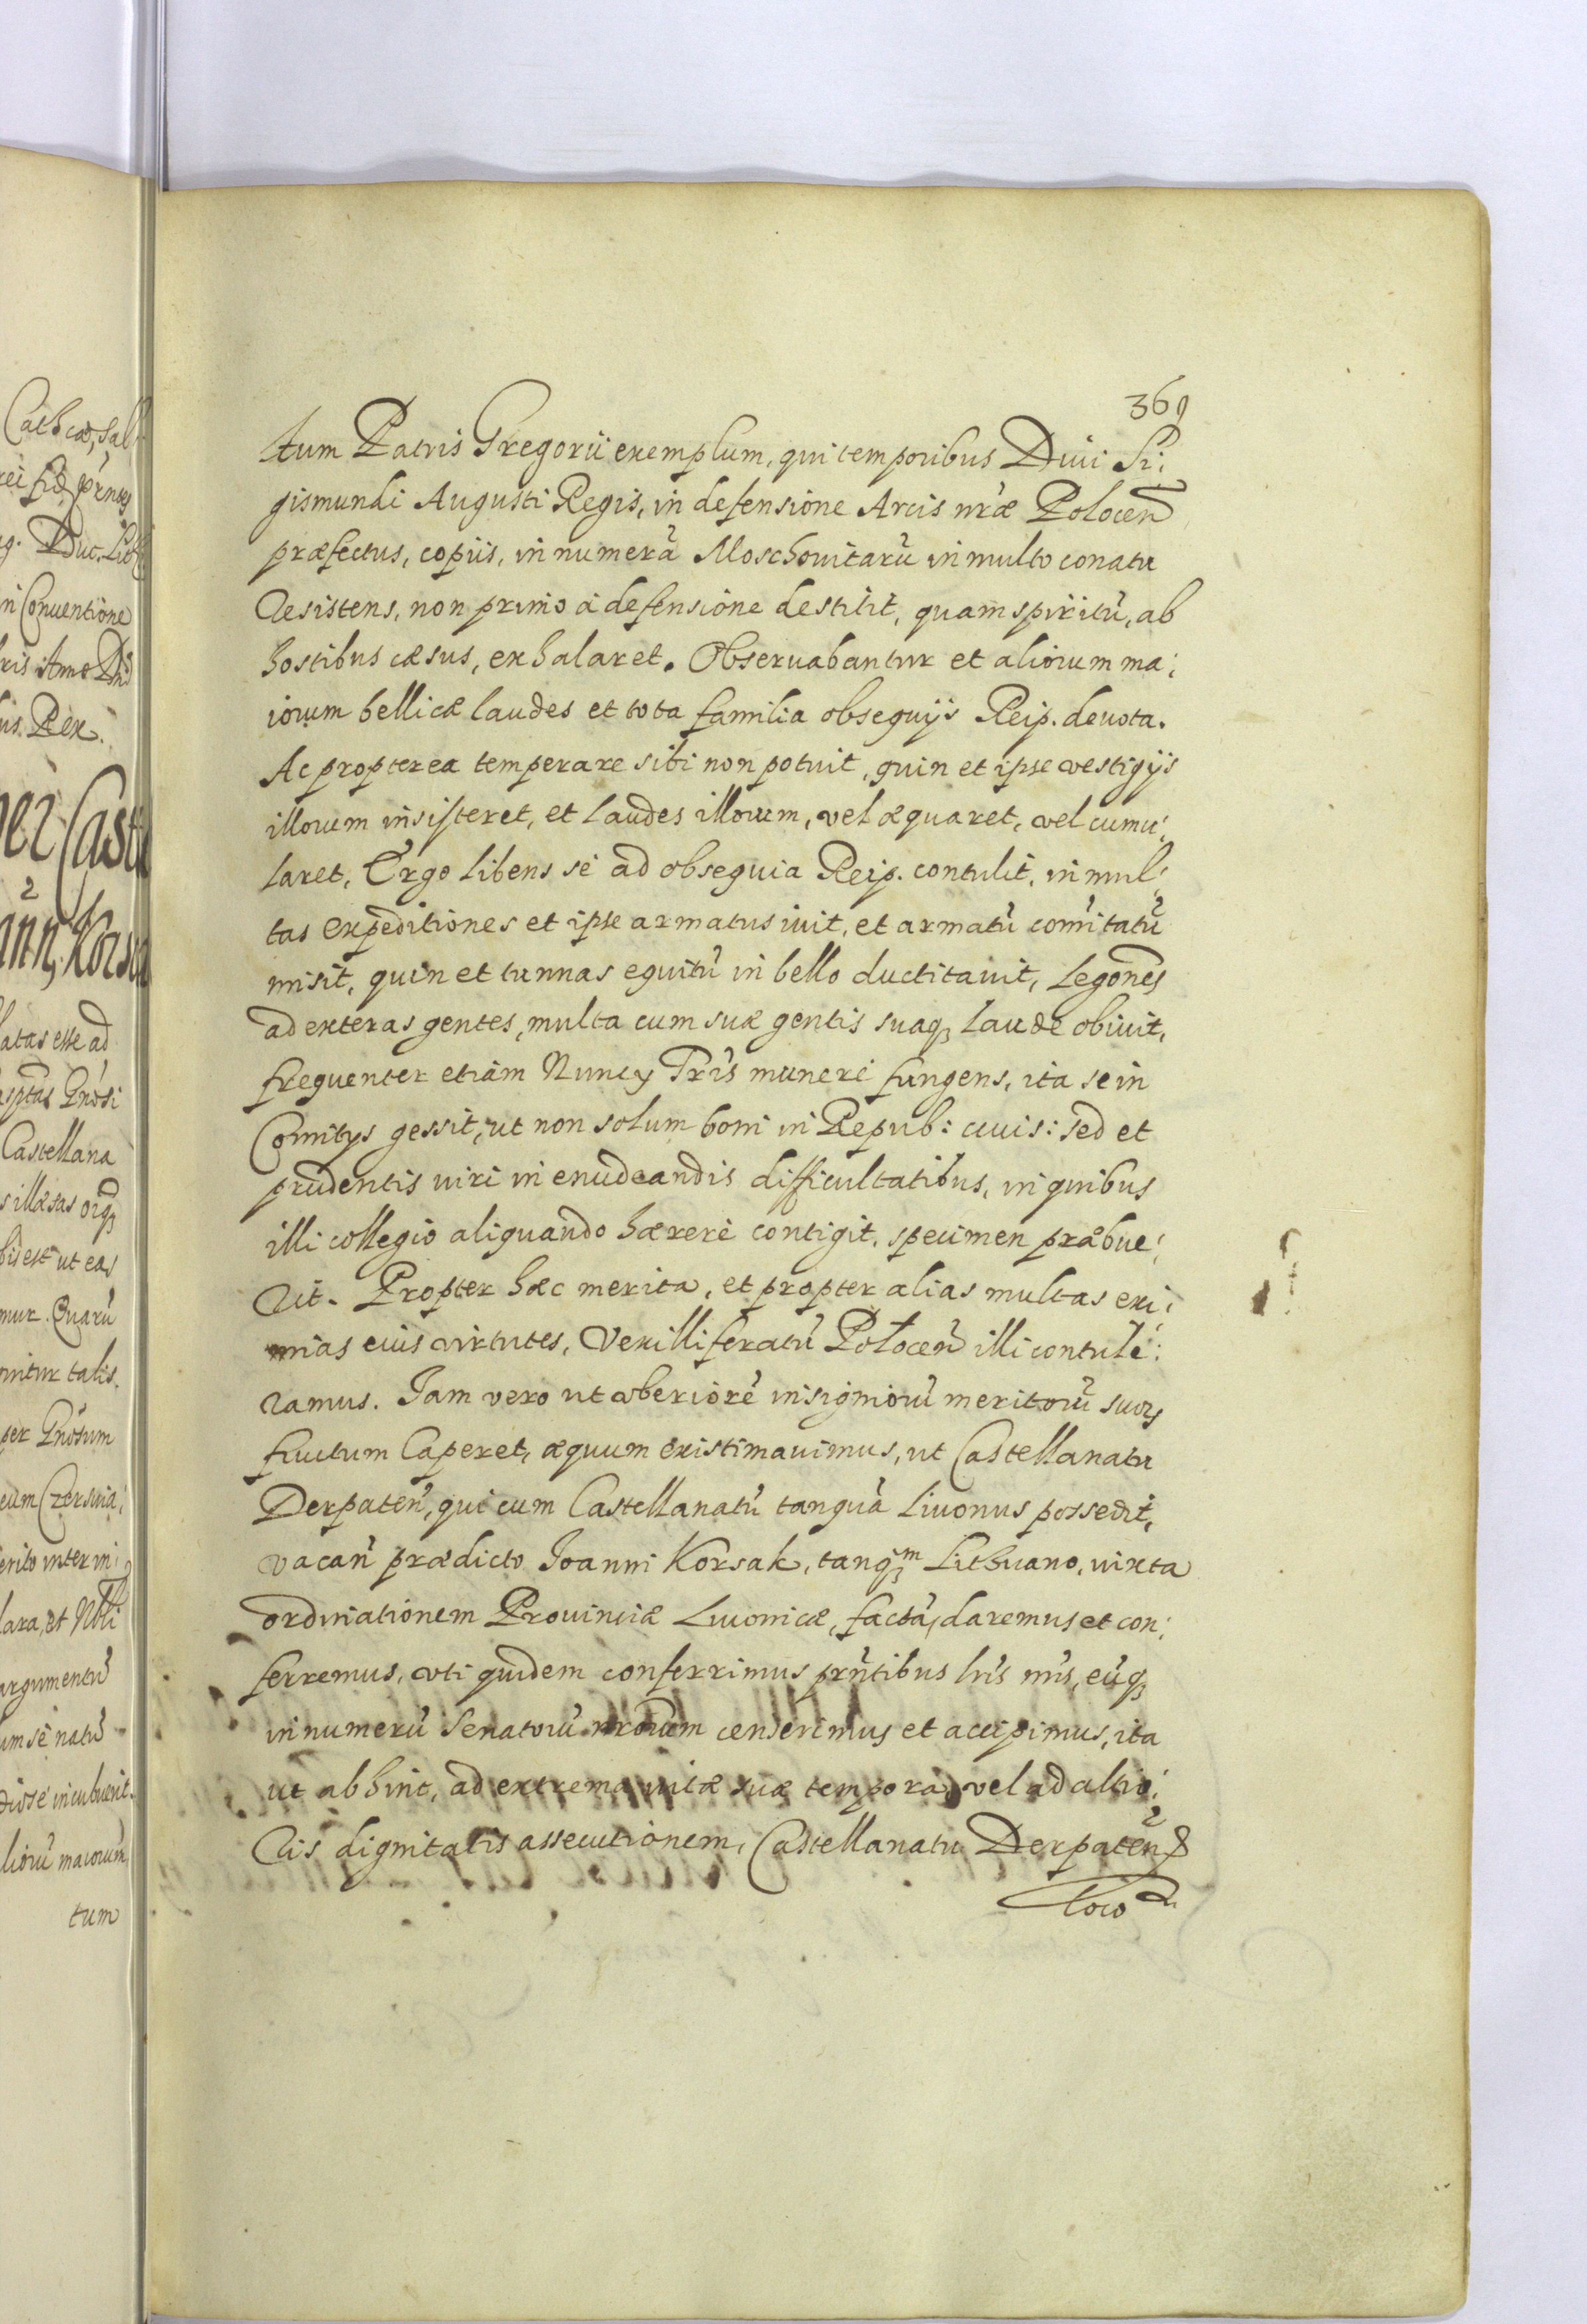 369
tum Patris Gregorii exemplum, qui temporibus Diui Si:
gismundi Augusti Regis, in defensione Arcis nr̃æ Polocen̄
præfectus, copiis, in numerã Moschouitarũ in multo conatu
resistens, non primo à defensione destitit, quam spiritũ, ab
hostibus cæsus, exhalaret. Obseruabantur et aliorum ma:
iorum bellicæ laudes et tota familia obsequijs Reip. deuota.
Ac propterea temperare sibi non potuit, quin et ipse vestigijs
illorum insisteret, et laudes illorum, vel æquaret, vel cumu:
laret, Ergo libens se ad obsequia Reip. contulit, in mul:
tas expeditiones et ipse armatus iuit, et armatũ comitatũ
misit, quin et turmas equitũ in bello ductitauit, Legones
ad exteras gentes, multa cum suæ gentis suaq; laude obiuit,
frequenter etiam Nuncy Tr̃is munere fungens, ita se in
Comitys gessit, ut non solum boni in Repub: ciuis: sed et
prudentis uiri in enudeandis difficultatibus, in quibus
illi collegio aliquando hærere contigit, specimen præbue:
rit. Propter hæc merita, et propter alias multas exi:
mias eius virtutes, Vexilliferatũ Polocen̄ illi contule:
ramus. Iam vero ut vberiorẽ insigniorũ meritorũ suor;
fructum Caperet, æquum existimauimus, ut Castellanatu
Derpaten̄, qui eum Castellanatũ tanquã Liuonus possedit,
vacan̄ prædicto Ioanni Korsak, tanq;m Lithuano, iuxta
ordinationem Prouinciæ Liuonicæ, factã, daremus et con:
ferremus, vti quidem conferrimus prñtibus lr̃is nr̃is, eũq;
in numerũ Senatorũ nrorum censerimus et accipimus, ita
ut ab hinc, ad extrema uitæ suæ tempora, vel ad altio:
ris dignitatis assecutionem, Castellanatu Derpaten̄
loco